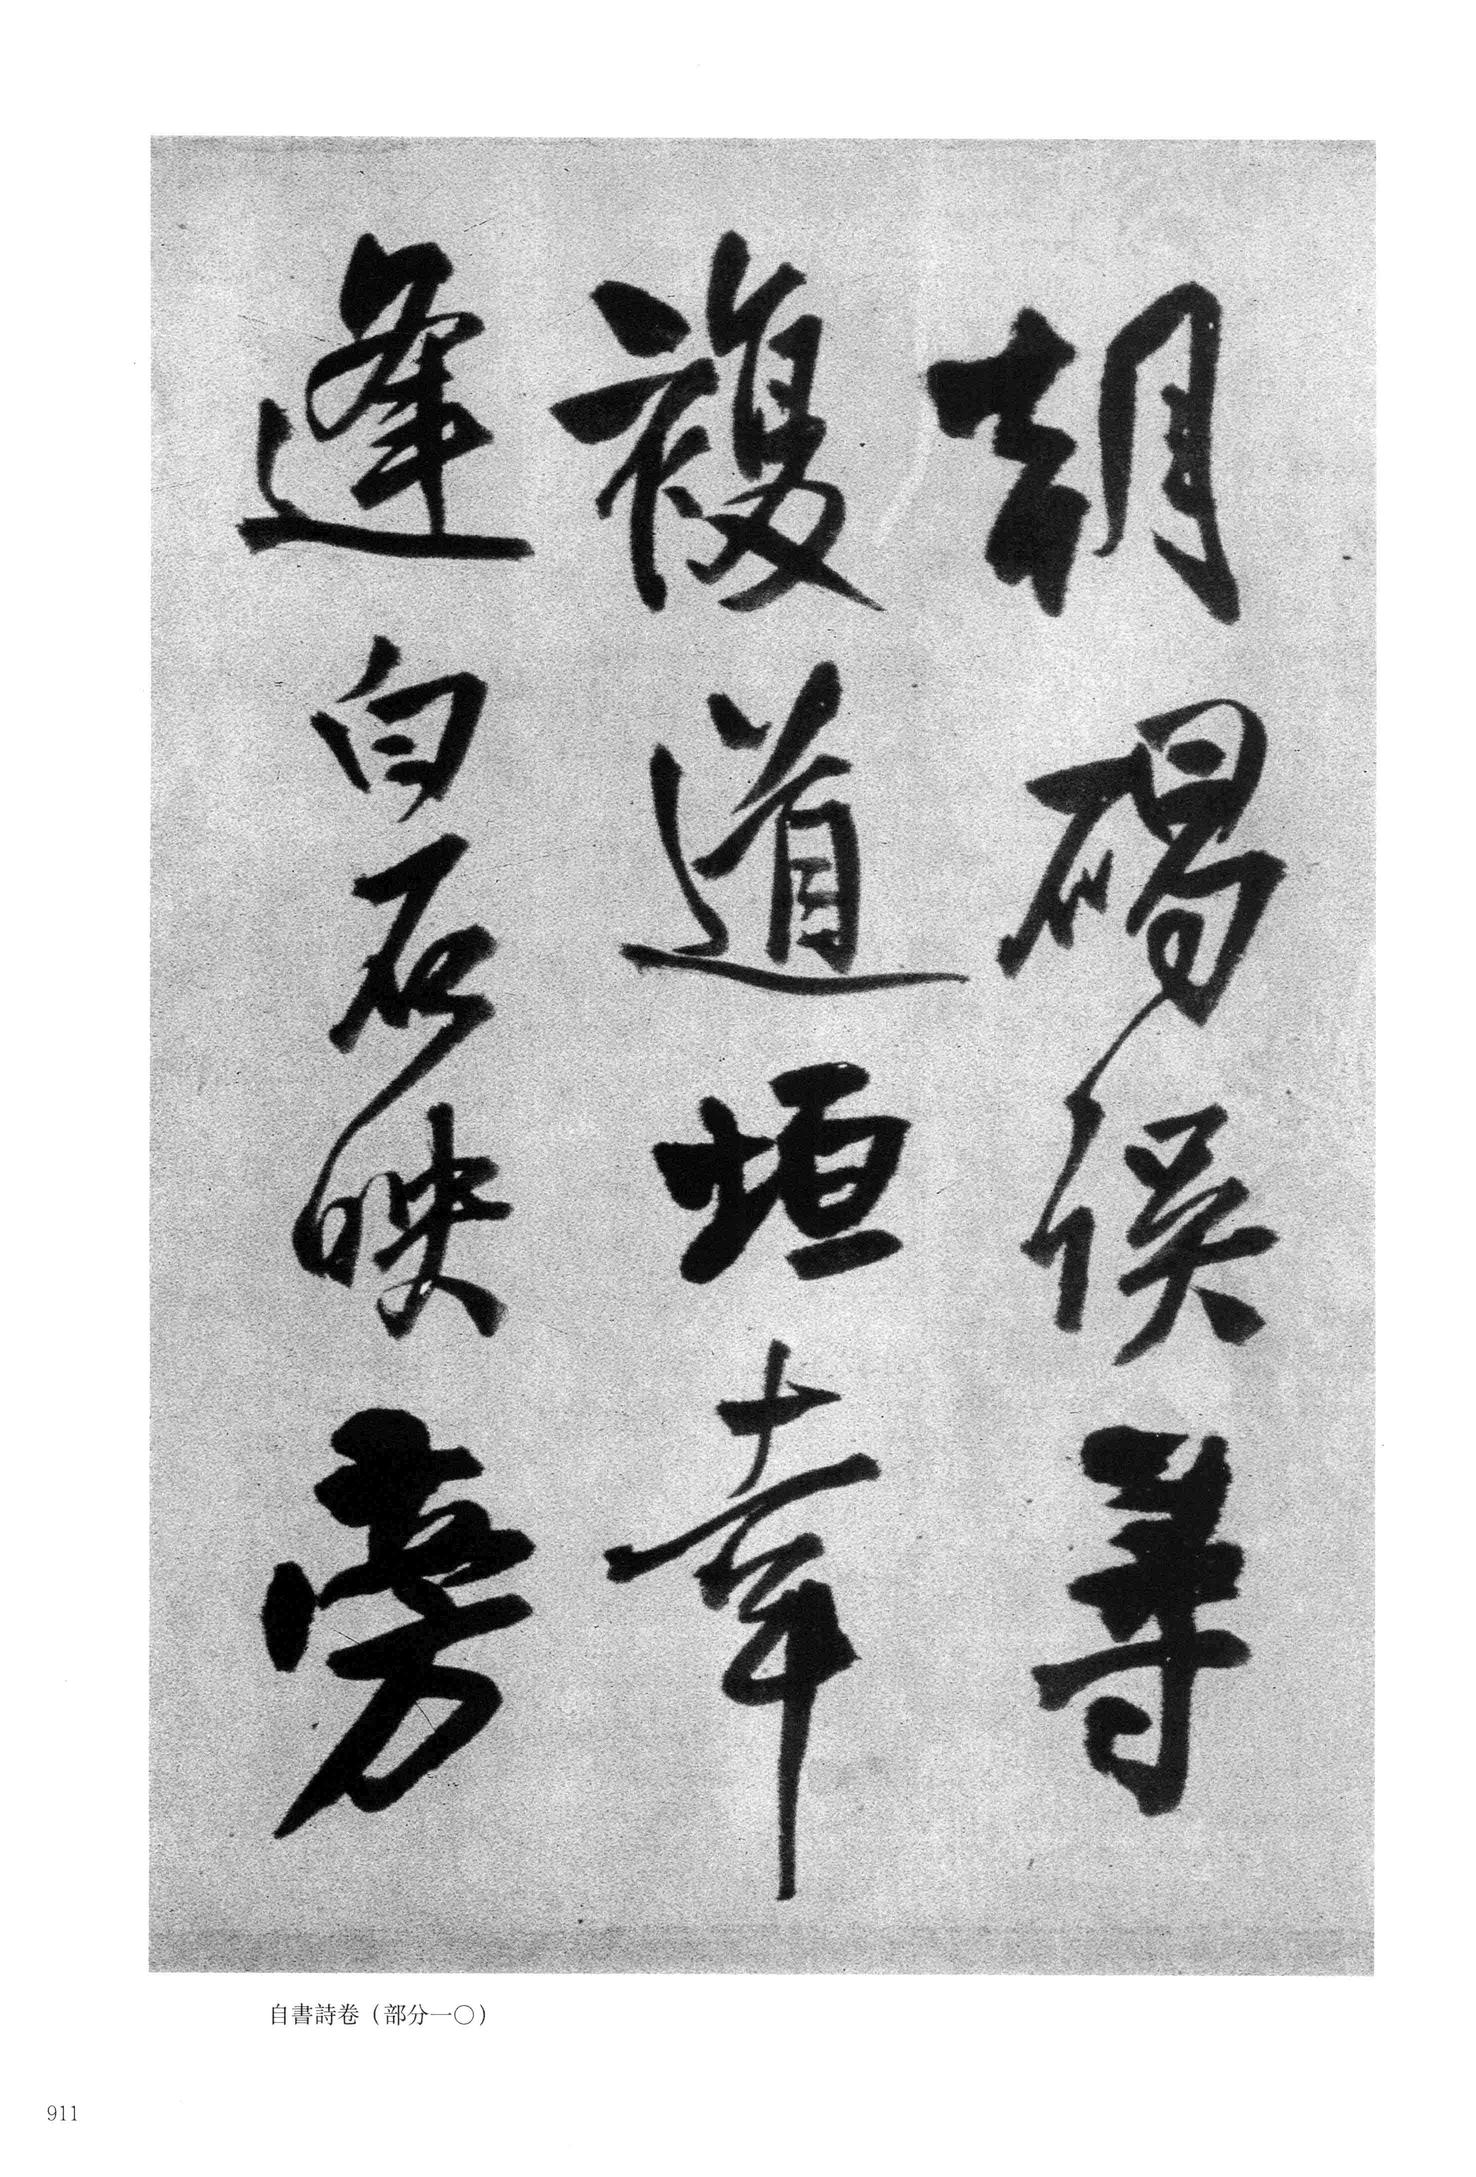 胡碣誤尋
複道垣幸
逢白石映旁
自書詩卷（部分一〇）
911